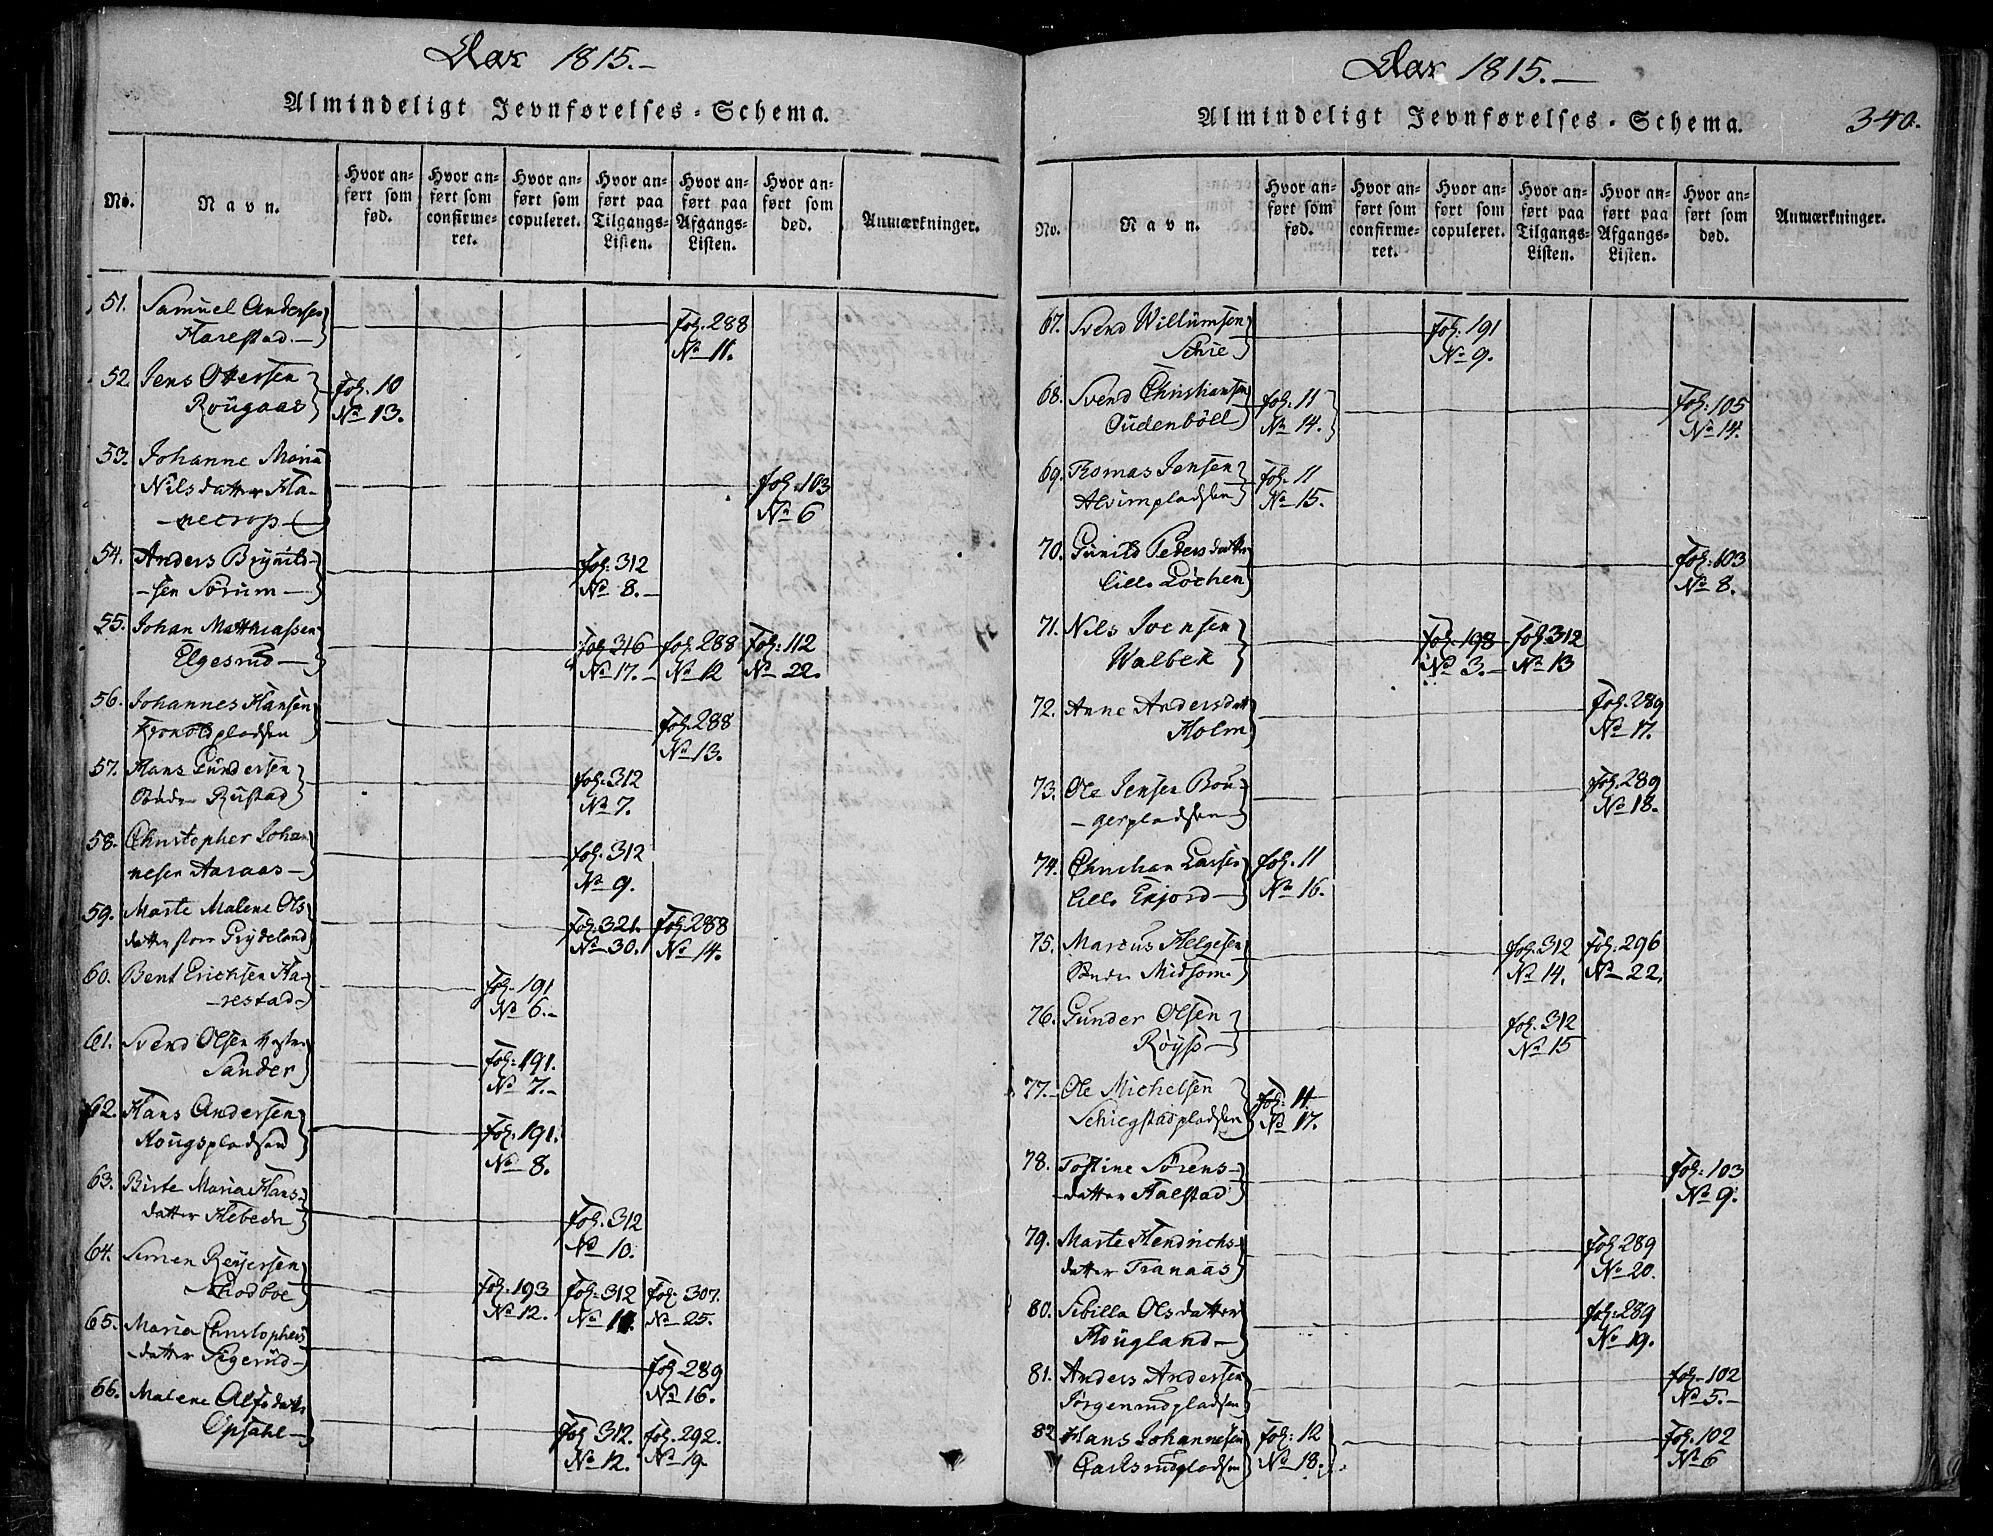 Aar 1815.-
Almindeligt Jevnførelses-Schema.
No.
Navn.
Hvor an-
ført som
fød.
Hvor an-
ført som
confirme-
ret.
Hvor an-
ført som
copuleret.
Hvor an-
ført paa
Tilgangs-
Listen.
Hvor an-
ført paa
Afgangs-
Listen.
Hvor an-
ført som
død.
Anmærkninger.
51. Samuel Andersen
Harestad.- fol. 288
No 11.
52. Jens Ottersen fol. 10
Rougaas No 13.
53. Johanne Maria
Nilsdatter Ha- fol. 103
-necrop- No 6
54. Anders Brynild- fol. 312
-sen Sørum- No 8.-
55. Johan Matthiassen fol. 316 fol. 288 fol. 112
Elgesrud- No 17.- No 12 No 22.
56. Johannes Hansen fol. 288
pladsen No 13.
57. Hans Gundersen fol. 312
Rustad No 7.
58. Christopher Johan- fol. 312
nesen Aaraas- No 9.
59. Marte Malene Ols fol. 321. fol. 288
datter store Grydeland No 30. No 14.
60. Bent Erichsen Ha- fol. 191
-restad- No 6.-
61. Svend Olsen Vestre fol. 191.
Sander No 7.-
62. Hans Andersen fol. 191.
Hougspladsen No 8.
63. Birte Maria Hans-
datter fol. 312
No 10.
64. Simen Reyersen
Schodboe fol. 193 fol. 312 fol. 307.
No 12. No 11. No 25.
65. Maria Christophers
-datter Sigerud- fol. 289
No 16.
66. Malene Alfsdatter
Opsahl- fol. 312. fol. 292.
No 12. No 19.
Aar 1815.-
Almindeligt Jevnførelses-Schema.
340.
No.
Navn.
Hvor an-
ført som
fød.
Hvor an-
ført som
confirme-
ret.
Hvor an-
ført som
copuleret.
Hvor an-
ført paa
Tilgangs-
Listen.
Hvor an-
ført paa
Afgangs-
Listen.
Hvor an-
ført som
død.
Anmærkninger.
67. Svend Willumsen fol. 191
Schie No 9.
68. Svend Christiansen fol. 11 fol. 105
Oudenböll No 14. No 14.
69. Thomas Jensen fol. 11
Alvimpladsen No 15.
70. Gunild Pedersdatter fol. 103
Lille Løchen No 8.
71. Nils Ivensen fol. 198 fol. 312
Walbek No 3.- No 13
72. Anne Andersdatt fol. 289
Holm No 17.
73. Ole Jensen Bou- fol. 289
-gerpladsen No 18.
74. Christian Larsen fol. 11
Lille Erjord- No 16.
75. Marcus Helgesen fol. 312 fol. 296
Midsom. No 14. No 22.
76. Gunder Olsen fol. 312
Röyss- No 15
77. Ole Michelsen fol. 11
Schiegstadpladsen No 17.
78. Tostine Sørens- fol. 103
-datter Halstad No 9.
79. Marte Hendrichs- fol. 289
datter Tranaas No 20.
80. Sibilla Olsdatter fol. 289
Hougland- No 19.
81. Anders Andersen fol. 102
Jörgenrudpladsen No 5.-
82. Hans Johannesen fol. 12 fol. 102
Carlsrudpladsen No 18. No 6